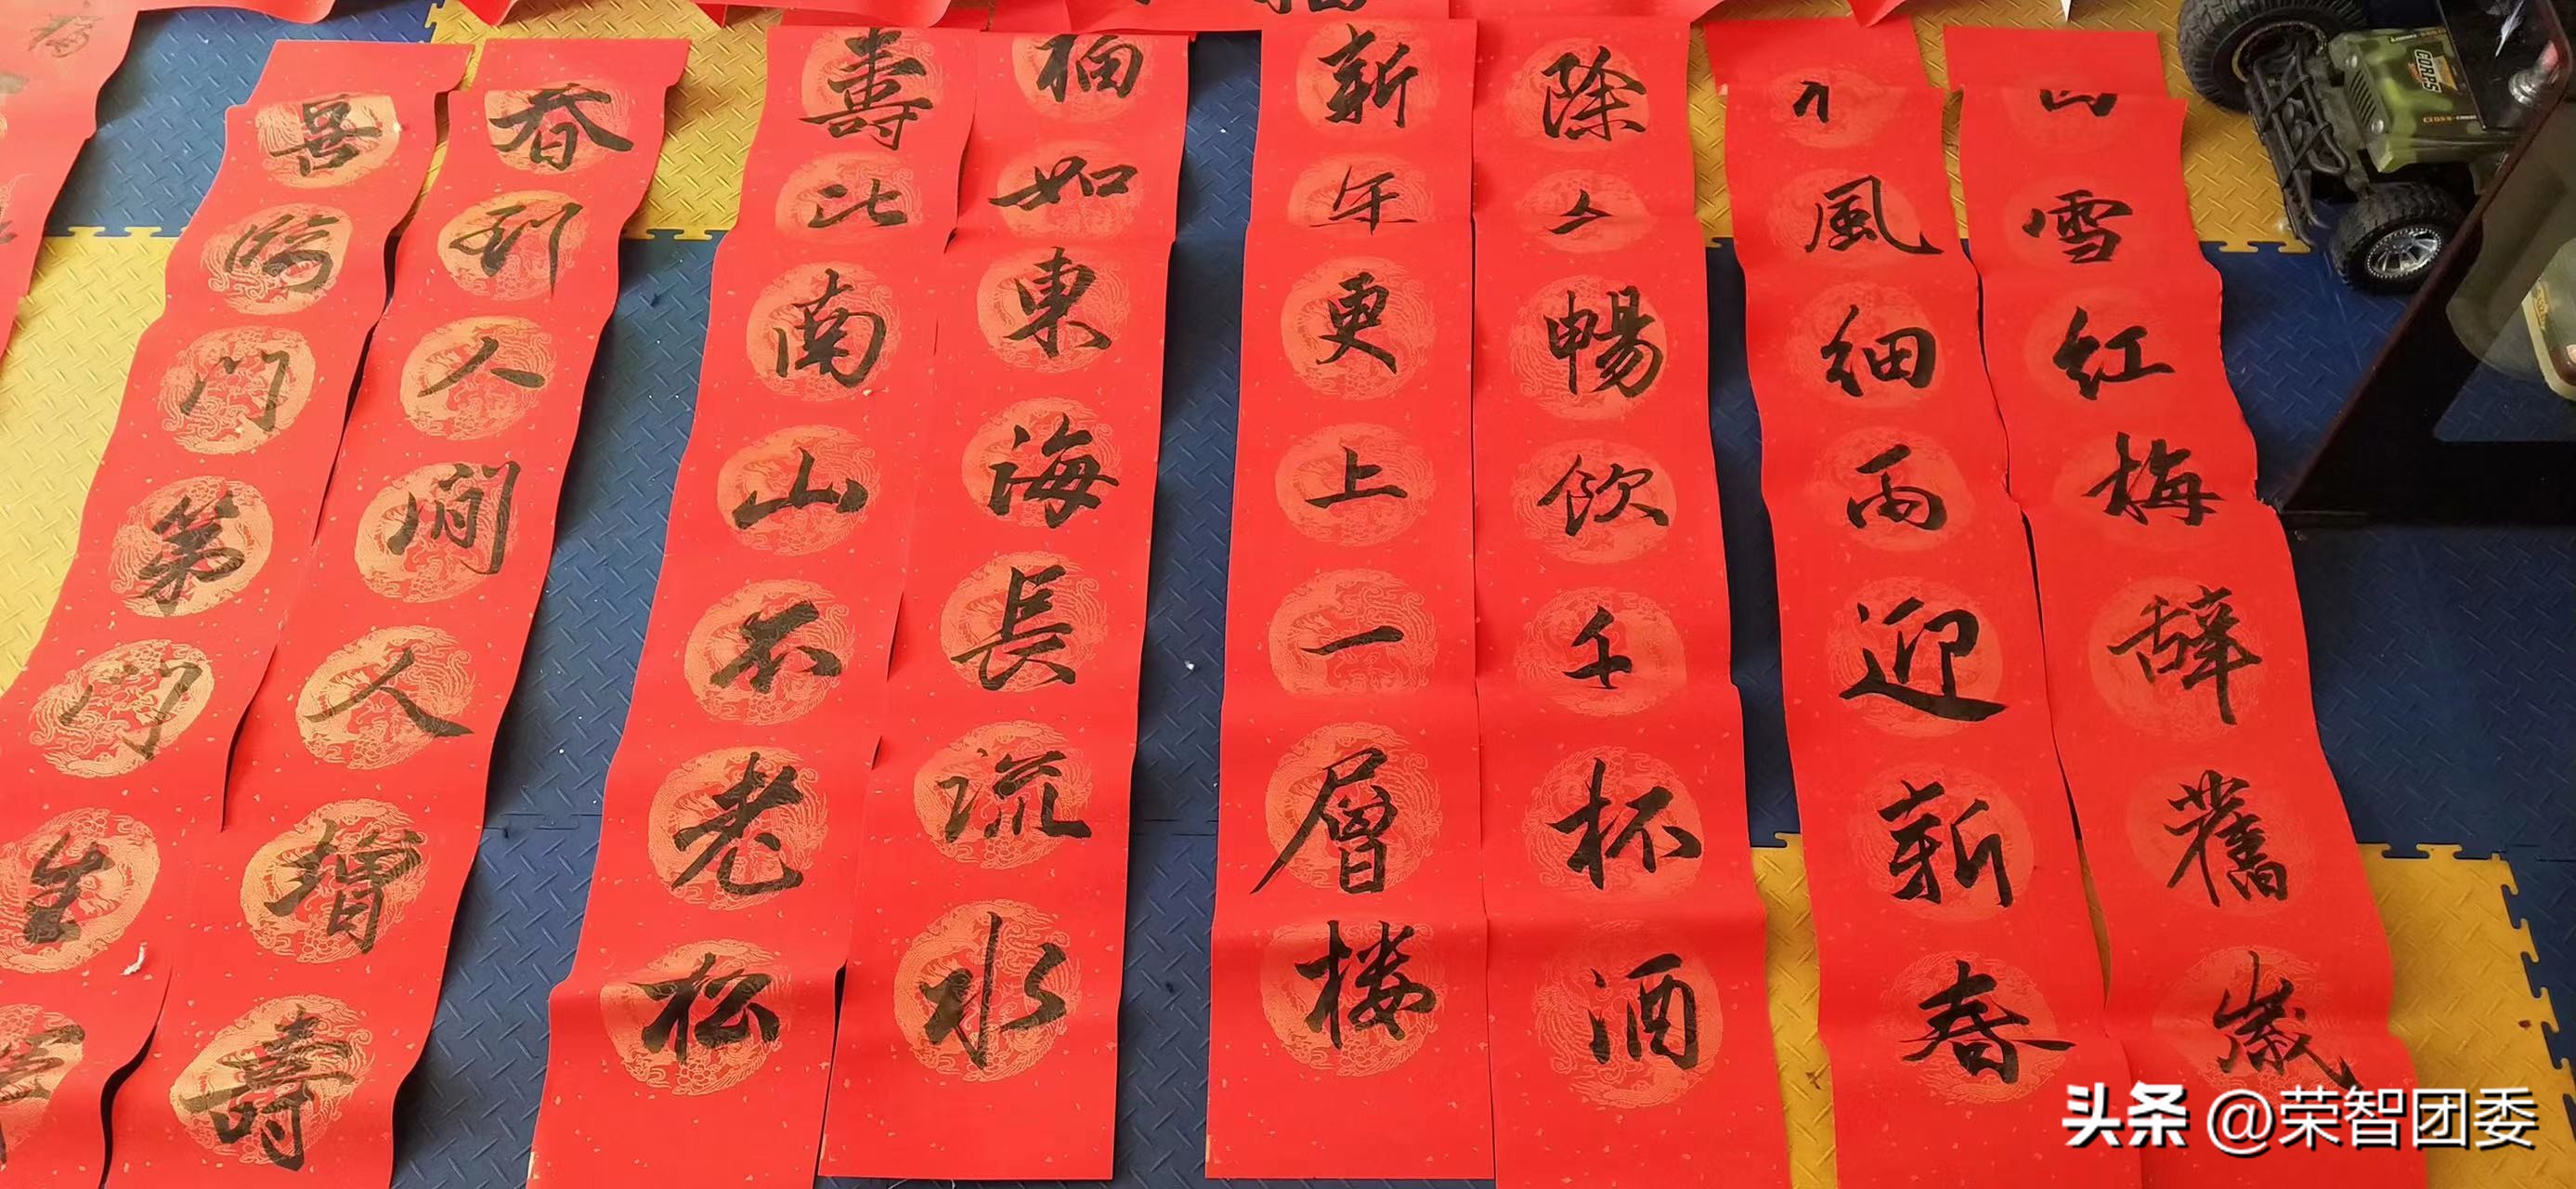 雪红梅辞舊歲
風细雨迎新春
除夕暢飲千杯酒
新年更上一層楼
福如東海長流水
壽比南山不老松
春到人间人增壽
喜临门第门生
CORPS
头条 @荣智团委